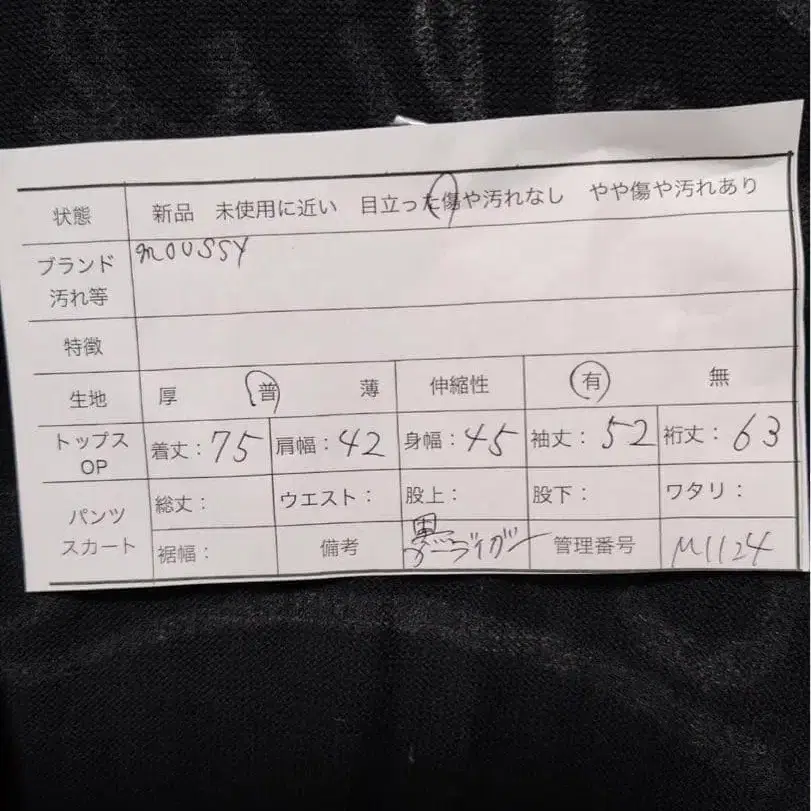 状態 新品 未使用に近い 目立った傷や汚れなし やや傷や汚れあり
ブランド moussy
汚れ等
特徴
生地 厚 普 薄 伸縮性 有 無
トップス OP 着丈:75 肩幅:42 身幅:45 袖丈:52 裄丈:63
パンツ スカート 総丈: ウエスト: 股上: 股下: ワタリ:
裾幅: 備考 黒 カーディガン 管理番号 M1124